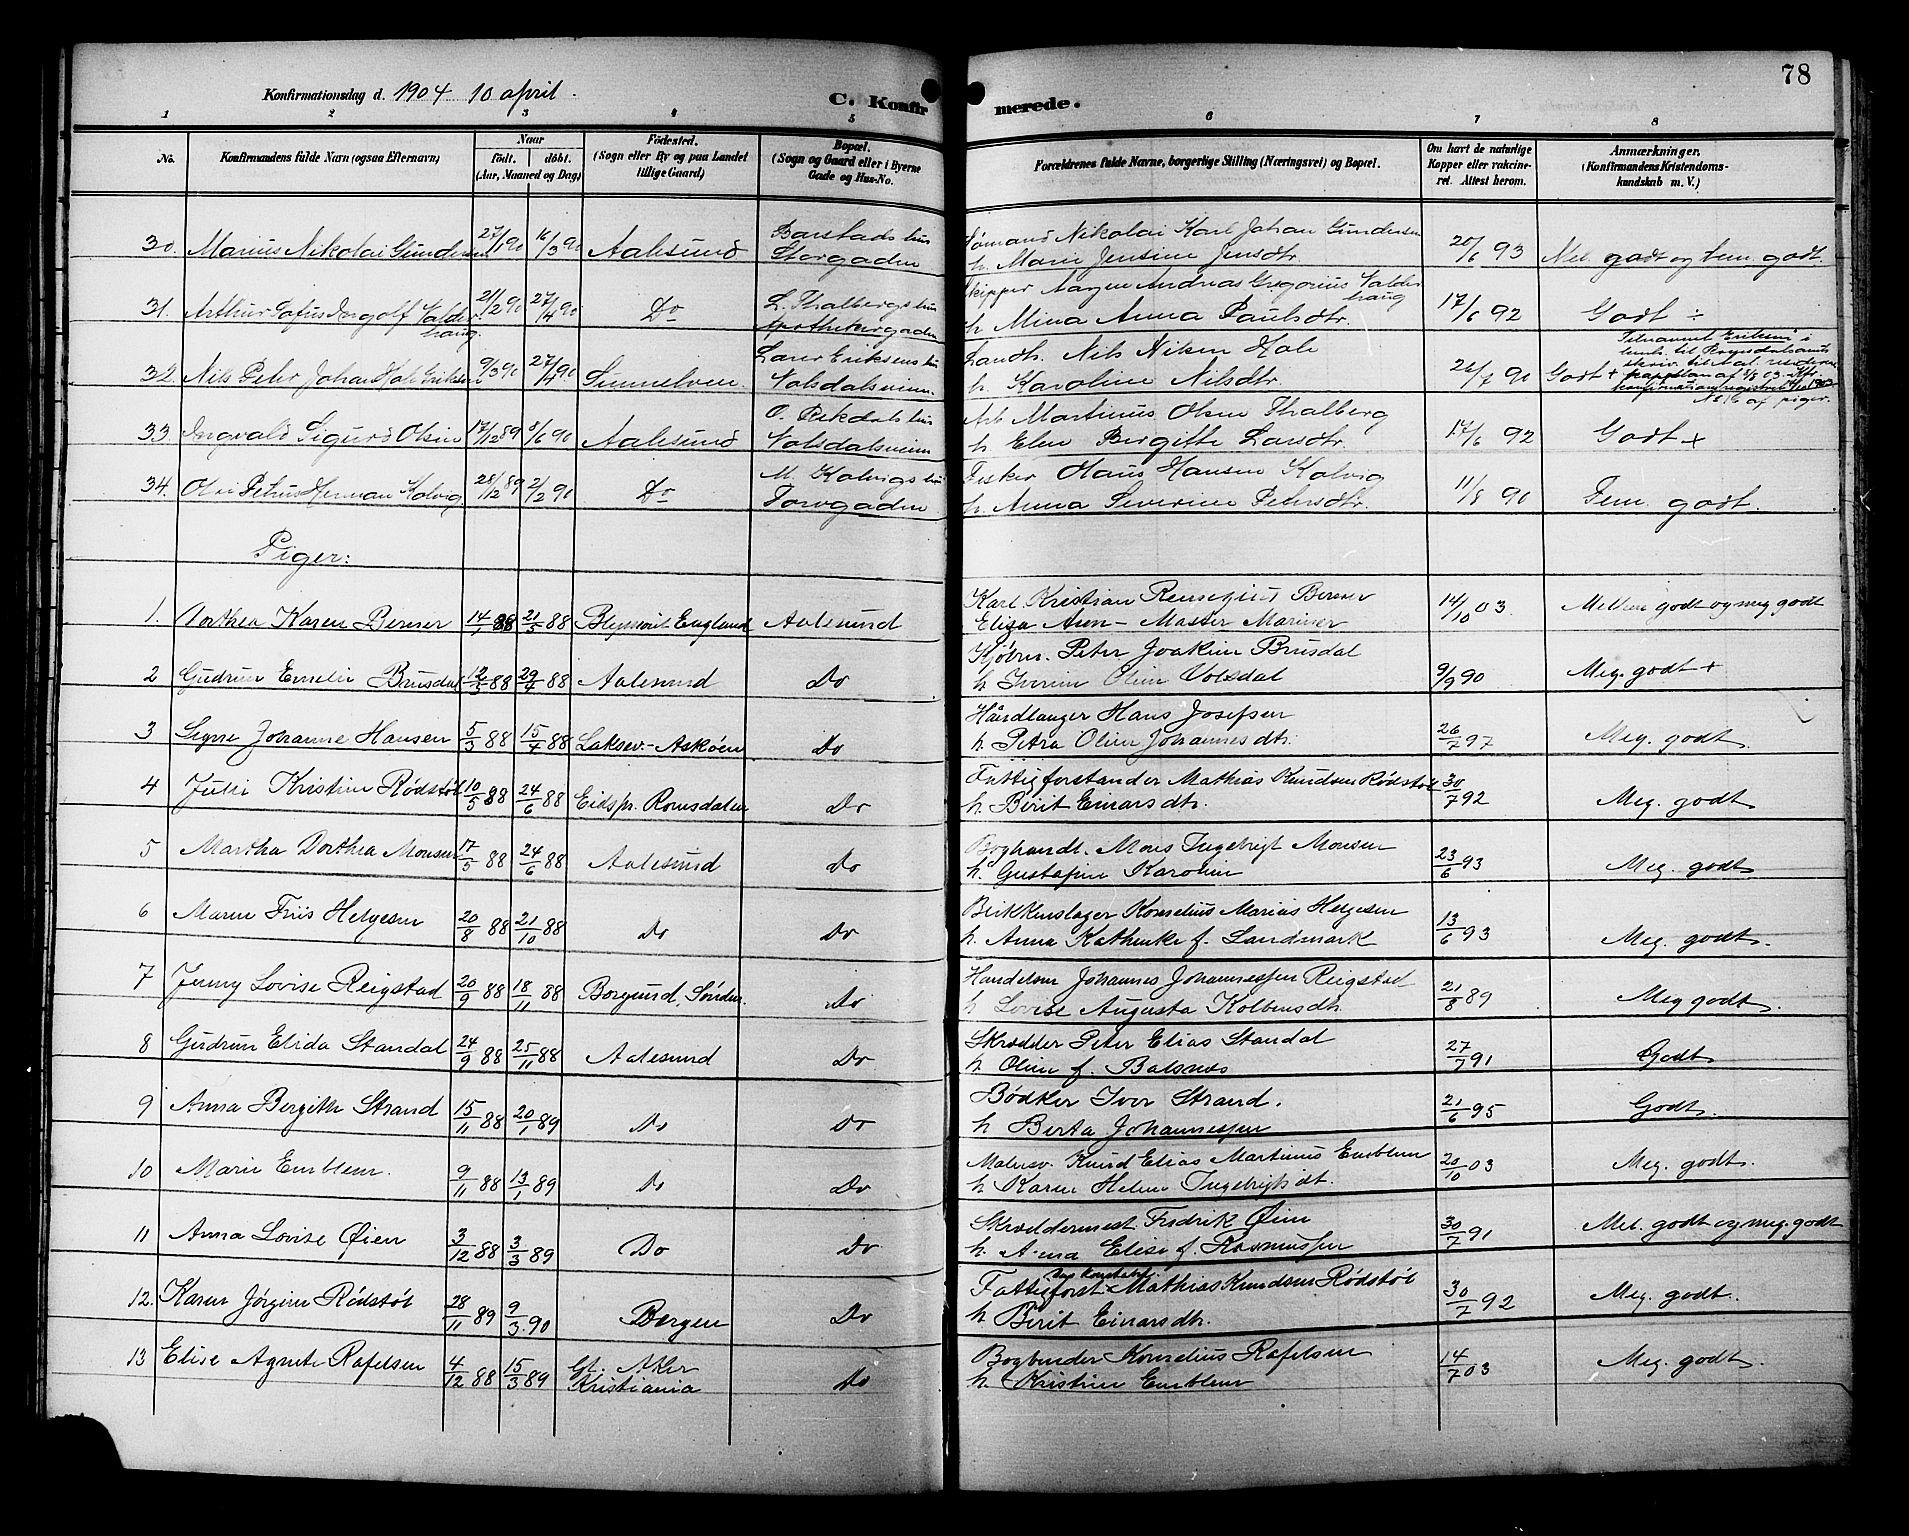 78
Konfirmationsdag d. 1904 10 april.
C. Konfirmerede.
1 2 3 4 5 6 7 8
No. Konfirmandens fulde Navn (ogsaa Efternavn) Naar født. døbt. (Aar, Maaned og Dag) Fødested. (Sogn eller By og paa Landet tillige Gaard) Bopæl. (Sogn og Gaard eller i Byerne Gade og Hus-No. Forældrenes fulde Navne, borgerlige Stilling (Næringsvei) og Bopæl. Om havt de naturlige Kopper eller vakcineret. Attest herom. Anmærkninger. (Konfirmandens Kristendomskundskab m. V.)
30. Marius Nikolai Gundersen 27/1 90 16/3 90 Aalesund Barstads hus Storgaden Sømand Nikolai Karl Johan Gundersen
h. Marie Jensine Jensdtr. 20/6 93 Mel. godt og tem. godt.
31. Arthur Sofus Ingolf Valderhaug. 21/2 90 27/4 90 Do L. Thalbergs hus Apothekergaden Skipper Aagen Andreas Gregorius Valderhaug
h. Mina Anna Paulsdtr. 17/6 92 Godt ÷
32. Nils Peter Johan Hole Eriksen 9/3 90 27/4 90 Sunnelven. Larer Eriksens hus Volsdalsveien. Landh. Nils Nilsen Hole
h. Karoline Nilsdtr. 26/7 90 Godt + Tilnavnet Eriksen i
No 16 af piger.
33. Ingvald Sigurd Olsen 17/12 89 8/6 90 Aalesund O. Pekdals hus Volsdalsveien Arb. Martinus Olsen Thalberg
h. Elen Bergitte Larsdtr. 17/6 92 Godt +
34. Olai Petrus Herman Kolvig 28/12 89 2/2 90 Do M. Kolvigs hus Torvgaden Fisker Hans Hansen Kolvig
h. Anna Severine Petersdtr. 11/8 90 Tem. godt.
Piger:
1. Dorthea Karen Berner 14/1 88 21/3 88 England Aalesund Karl Kristian Berner
Eliza Ann – Master Mariner 14/10 03. Mellem godt og meg godt
2 Gudrun Emelie Brusdal 12/3 88 29/4 88 Aalesund Do Kjøbm. Peter Joakim Brusdal
h. Iverine Oline Volsdal 9/9 90 Meg. godt +
3 Signe Johanne Hansen 5/3 88 15/4 88 Laksev.– Askøen Do Håndlanger Hans Josefsen
h. Petra Oline Johannesdtr. 26/7 97 Meg. godt.
4 Julie Kristine Rødstøl 10/5 88 24/6 88 Eidspr. Romsdalen Do Fattigforstander Mathias Knudsen Rødstøl
h. Birit Einarsdtr. 30/7 92 Meg. godt
5 Martha Dorthea Monsen 17/5 88 24/6 88 Aalesund Do Boghandl. Mons Ingebrigt Monsen
h. Gustafine Karoline 23/6 93 Meg. godt
6 Maren Friis Helgesen 20/8 88 21/10 88 Do Do Blikkenslager Kornelius Marius Helgesen
h. Anna Kathinke f. Landmark 13/6 93 Meg. godt.
7 Jenny Lovise Reigstad 20/9 88 18/11 88 Borgund, Søndm. Do Handelsm Johannes Johannessen Reigstad
h Lovise Augusta Kolbensdtr. 21/8 89 Meg godt.
8 Gudrun Elida Standal 24/9 88 25/11 88 Aalesund Do Skrædder Peter Elias Standal
h. Oline f. Balsnes 27/7 91 Godt
9 Anna Bergithe Strand 15/11 88 20/1 89 Do Do Bødker Iver Strand.
h Berta Johannessen 21/6 95 Godt.
10 Marie Emblem. 9/11 88 13/1 89 Do Do Malersv. Knud Elias Martinus Emblem
h Karen Helene Ingebrigtsdt. 20/10 03 Meg. godt.
11 Anna Lovise Øien 3/12 88 3/3 89 Do Do Skræddermest Fredrik Øien
h. Anna Elise f. Rasmussen 30/7 91 Mel. godt og meg. godt
12. Karen Jørgine Rødstøl 28/11 89 9/3 90 Bergen Do Fattigforst. Mathias Knudsen Rødstøl
h Birit Einarsdtr. 30/7 92 Meg. godt.
13 Elise Agnete Rafelsen 4/12 88 15/3 89 Gl. Aker Kristiania Do Bogbinder Kornelius Rafelsen
h. Kristine Emblem 14/7 03 Meg. godt.